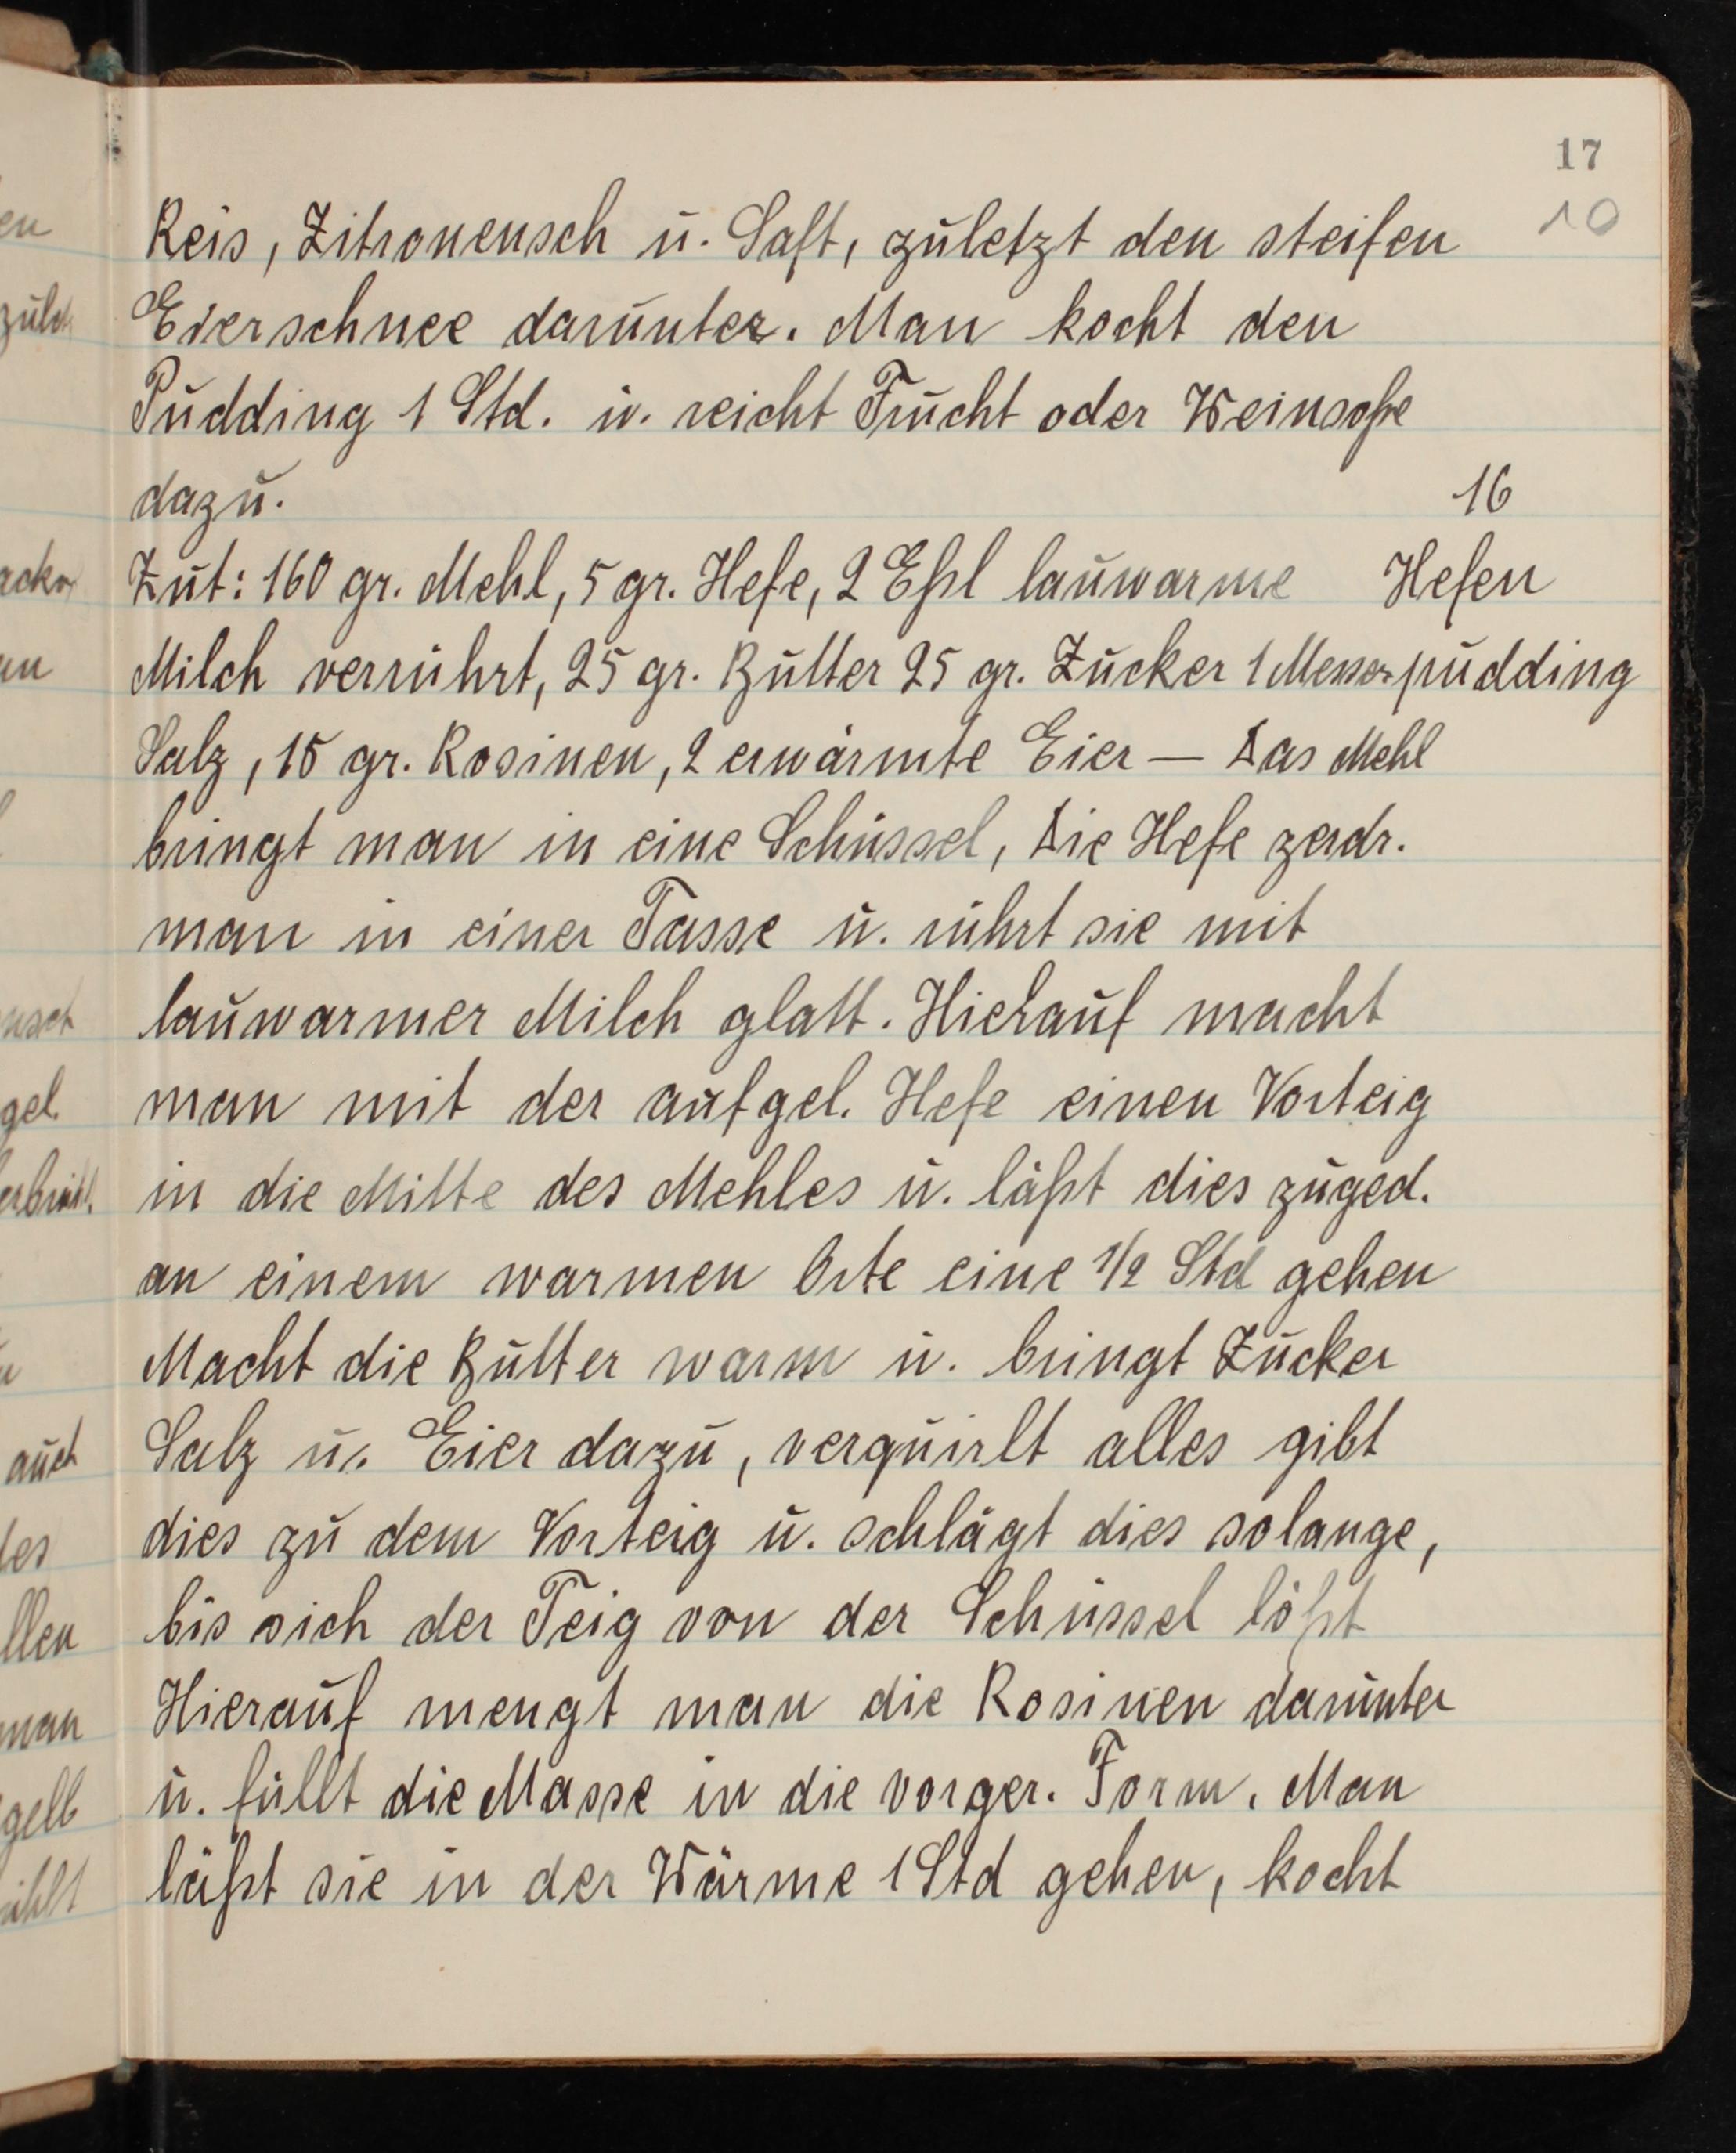 17
10
Reis, Zitronensch u. Saft, zuletzt den steifen
Eierschnee darunter. Man kocht den
Pudding 1 Std. u. reicht Frucht oder Weinsoße
dazu.
16
Hefen
pudding
Zut: 160 gr. Mehl, 5 gr. Hefe, 2 Eßl lauwarme
Milch verrührt, 25 gr. Butter 25 gr. Zucker 1 Messer
Salz, 15 gr. Rosinen, 2 erwärmte Eier — Das Mehl
bringt man in eine Schüssel, Die Hefe zerdr.
man in einer Tasse u. rührt sie mit
lauwarmer Milch glatt. Hierauf macht
man mit der aufgel. Hefe einen Vorteig
in die Mitte des Mehles u. läßt dies zuged.
an einem warmen Orte eine 1/2 Std gehen
Macht die Butter warm u. bringt Zucker
Salz u. Eier dazu, verquirlt alles gibt
dies zu dem Vorteig u. schlägt dies solange,
bis sich der Teig von der Schüssel lößt
Hierauf mengt man die Rosinen darunter
u. füllt die Masse in die vorger. Form. Man
läßt sie in der Wärme 1 Std gehen, kocht